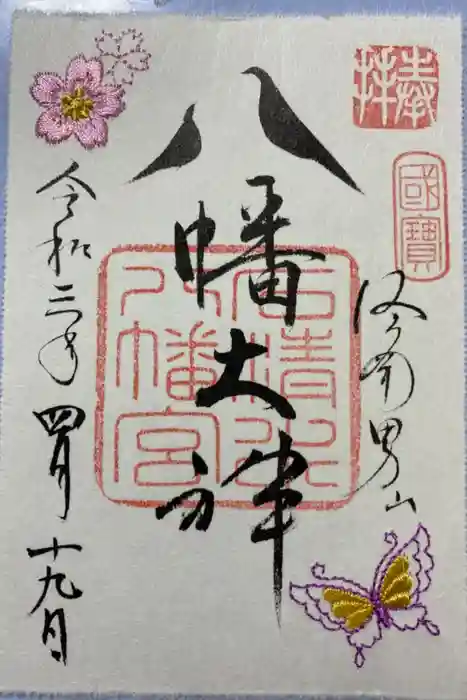 奉拜
國寶
男山
八幡大神
石清水
八幡宮
令和三年四月十九日